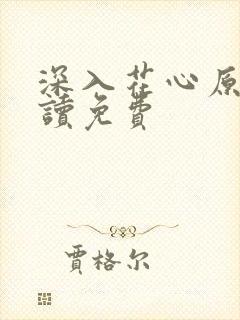 深入花心原
讀免費
賈格尔